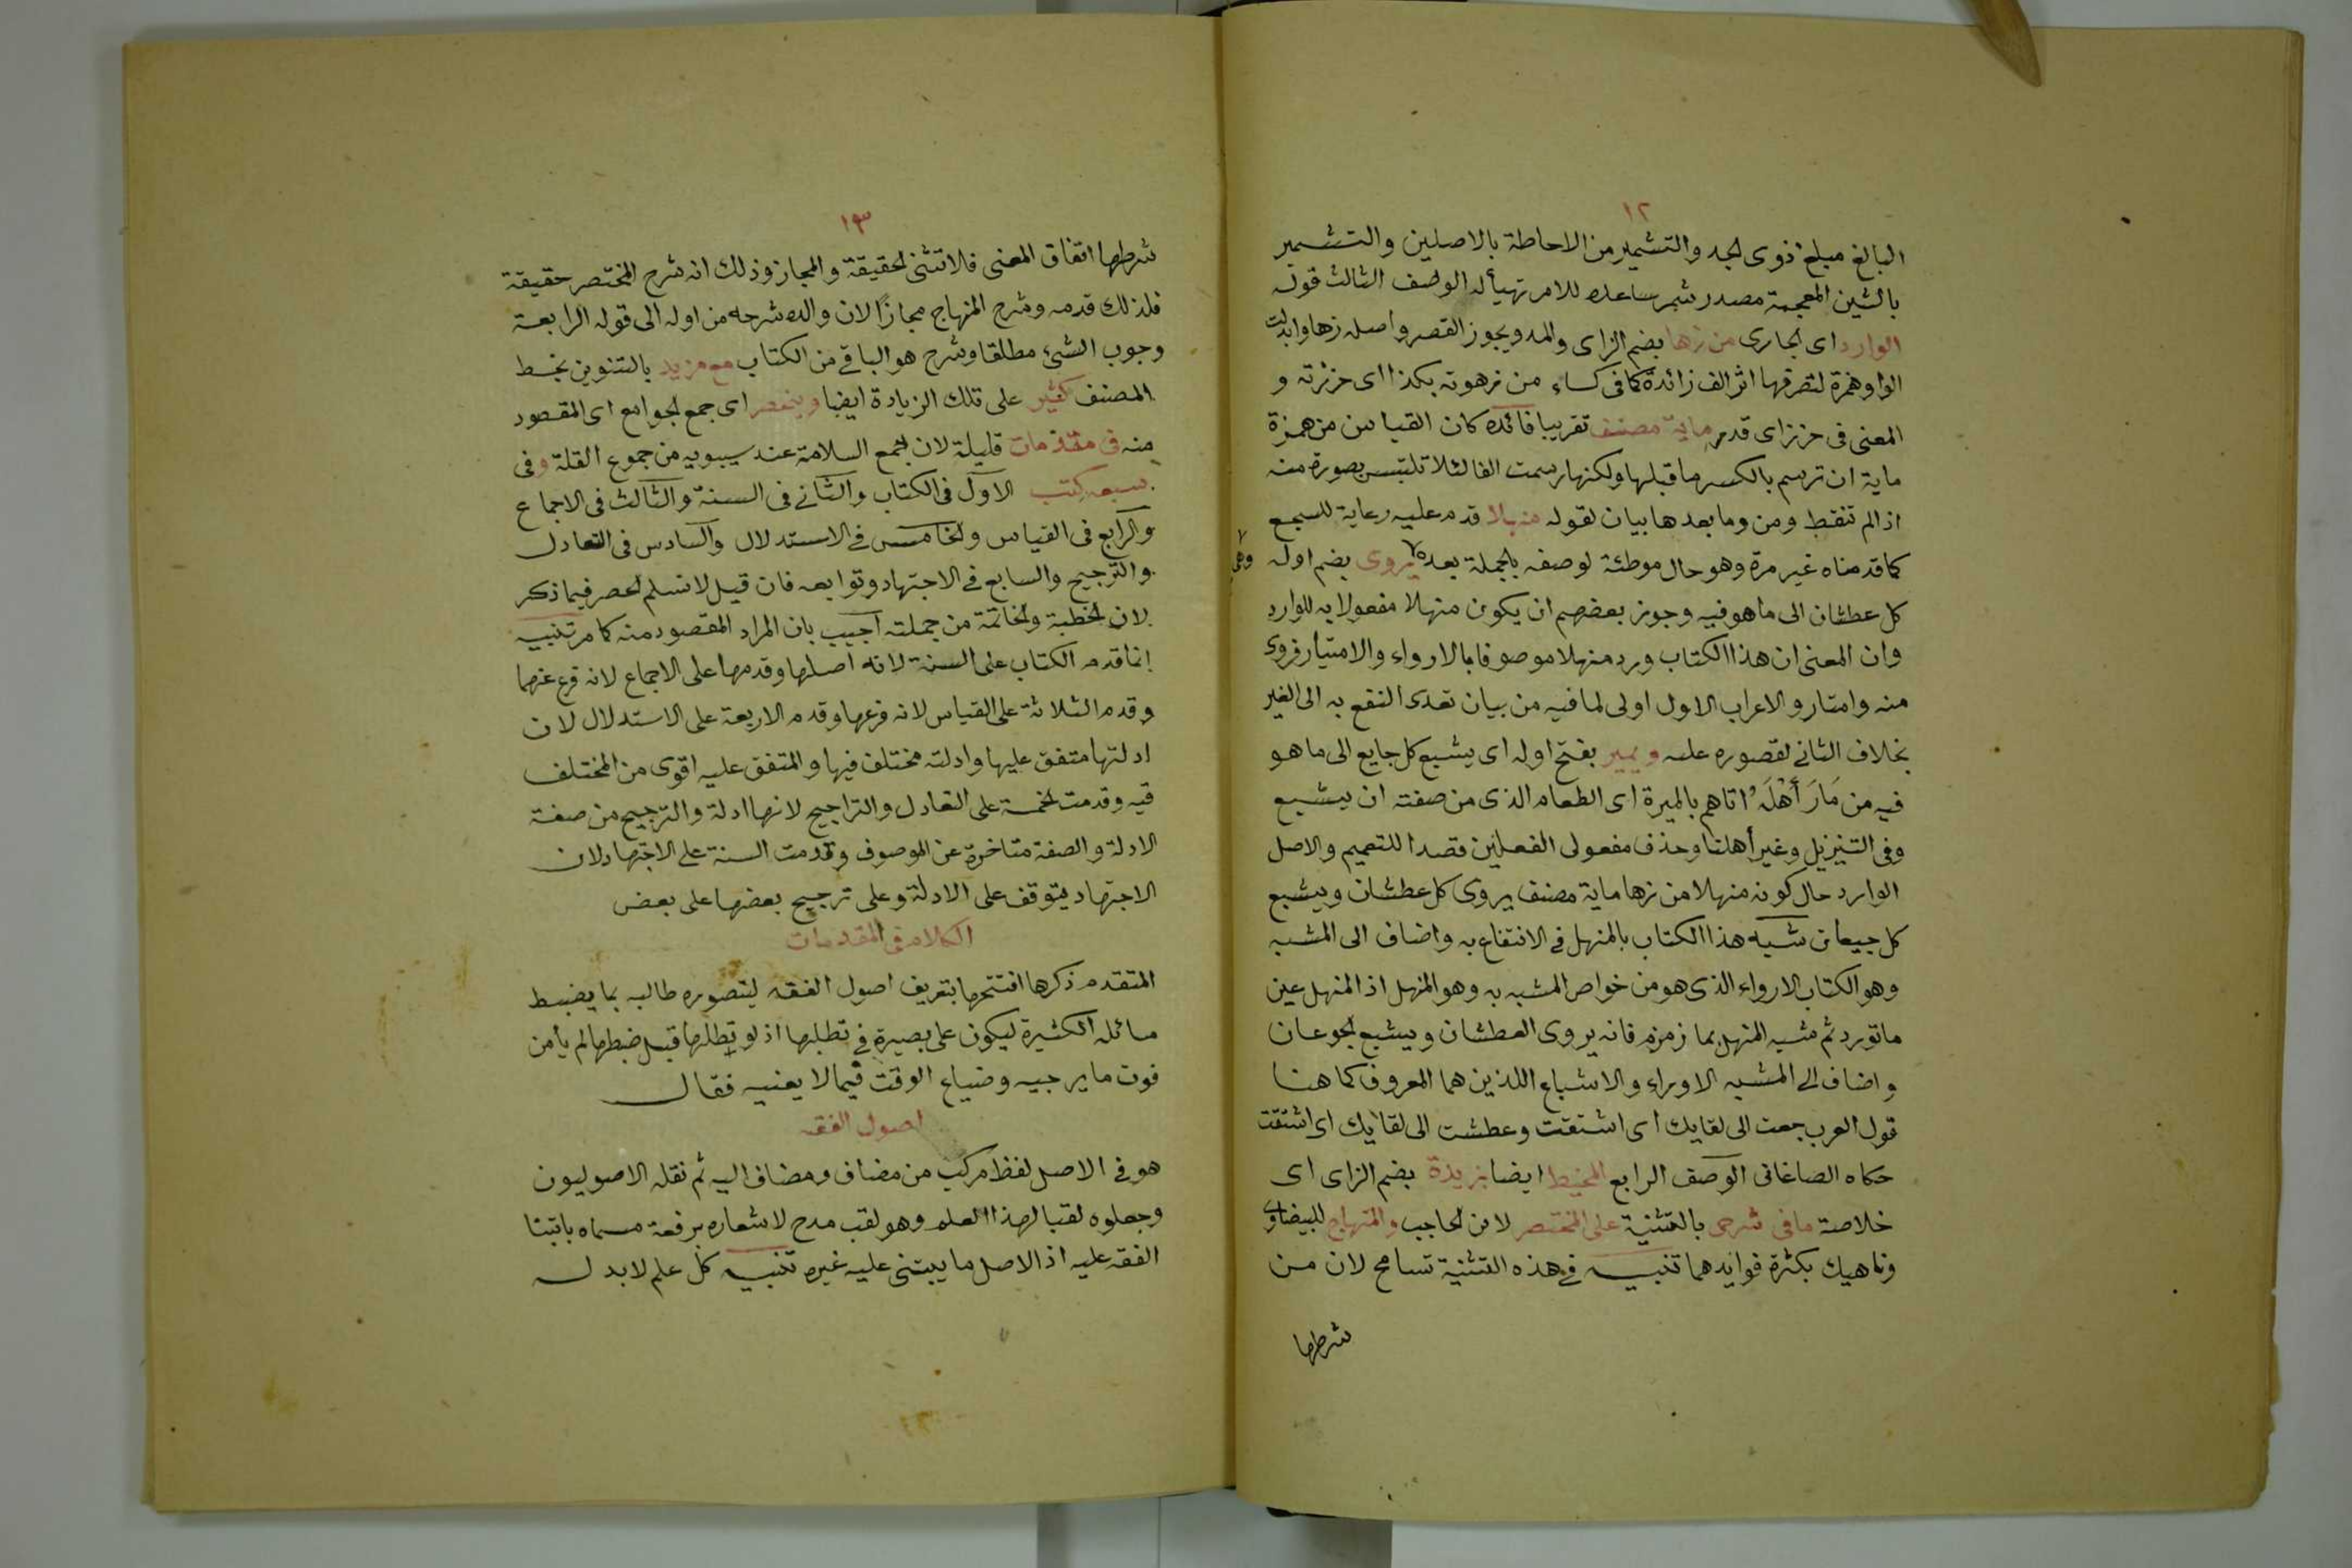 ١٢
البالغ مبلغ ذوى الجد والتشمير من الاحاطة بالاصلين والتشمير
بالشين المعجمة مصدر شمر ساعده للامر تهيأ له الوصف الثالث قوله
الوارد اى الجارى من زها بضم الزاى والمد ويجوز القصر واصله زهاو ابدلت
الواو همزة لتطرفها اثر الف زائدة كما فى كساء من زهوته بكذا اى حزرته و
المعنى فى حزز اى قدر ماية مصنف تقريبا فائده كان القياس من همزة
ماية ان ترسم بالكسر ما قبلها ولكنها رسمت الفا لئلا تلتبس بصورة منه
اذا لم تنقط ومن وما بعدها بيان لقوله منهلا قدم عليه رعاية للسجع
كما قدمناه غير مرة وهو حال موطئة لوصفه بالجملة بعده يروى بضم اوله
وهى
كل عطشان الى ما هو فيه وجوز بعضهم ان يكون منهلا مفعولا به للوارد
وان المعنى ان هذا الكتاب ورد منهلا موصوفا بالارواء والامتيار فروى
منه وامتار والاعراب الاول اولى لما فيه من بيان تعدى النفع به الى الغير
بخلاف الثانى لقصوره عليه ويمير بفتح اوله اى يشبع كل جايع الى ما هو
فيه من مَارَ أَهْلَهُ اتاهم بالميرة اى الطعام الذى من صفته ان يشبع
وفى التنزيل ونمير أهلنا وحذف مفعولى الفعلين قصدا للتعميم والاصل
الوارد حال كونه منهلا من زها ماية مصنف يروى كل عطشان ويشبع
كل جيعان شبه هذا الكتاب بالمنهل فى الانتفاع به واضاف الى المشبه
وهو الكتاب الارواء الذى هو من خواص المشبه به وهو المنهل اذ المنهل عين
ما تورد ثم شبه المنهل بما زمزم فانه يروى العطشان ويشبع الجوعان
واضاف الى المشبه الاوراء والاشباع اللذين هما المعروف كما هنا
قول العرب جعت الى لقايك اى اشتقت وعطشت الى لقايك اى اشتقت
حكاه الصاغانى الوصف الرابع المحيط ايضا بزبدة بضم الزاى اى
خلاصة ما فى شرحى بالتثنية على المختصر لابن الحاجب والمنهاج للبيضاوى
وناهيك بكثرة فوايدهما تنبيه فى هذه التثنية تسامح لان من
شرطها
١٣
شرطها اتفاق المعنى فلا تثنى الحقيقة والمجاز وذلك انه شرح المختصر حقيقة
فلذلك قدمه وشرح المنهاج مجازًا لان والده شرحه من اوله الى قوله الرابعة
وجوب الشئ مطلقا وشرح هو الباقى من الكتاب مع مزيد بالتنوين بخط
المصنف كثير على تلك الزيادة ايضا وينحصر اى جمع الجوامع اى المقصود
منه فى مقدمات قليلة لان جمع السلامة عند سيبويه من جموع القلة وفى
سبعه كتب الاول فى الكتاب والثانى فى السنة والثالث فى الاجماع
والرابع فى القياس والخامس فى الاستدلال والسادس فى التعادل
والترجيح والسابع فى الاجتهاد وتوابعه فان قيل لا نسلم الحصر فيما ذكر
لان الخطبة والخاتمة من جملته اجيب بان المراد المقصود منه كما مر تنبيه
انما قدم الكتاب على السنة لانه اصلها وقدمها على الاجماع لانه فرع عنهما
وقدم الثلاثة على القياس لانه فرعها وقدم الاربعة على الاستدلال لان
ادلتها متفق عليها وادلته مختلف فيها والمتفق عليه اقوى من المختلف
فيه وقدمت الخمسة على التعادل والتراجيح لانها ادلة والترجيح من صفة
الادلة والصفة متاخرة عن الموصوف وقدمت السنة على الاجتهاد لان
الاجتهاد يتوقف على الادلة وعلى ترجيح بعضها على بعض
الكلام فى المقدمات
المتقدم ذكرها افتتحها بتعريف اصول الفقه ليتصوره طالبه بما يضبط
مسائله الكثيرة ليكون على بصيرة فى تطلبها اذ لو تطلبها قبل ضبطها لم يأمن
فوت ما يرجيه وضياع الوقت فيما لا يعنيه فقال
اصول الفقه
هو فى الاصل لفظ مركب من مضاف ومضاف اليه ثم نقله الاصوليون
وجعلوه لقبا لهذا العلم وهو لقب مدح لاشعاره برفعة مسماه بابتنا
الفقه عليه اذ الاصل ما يبتنى عليه غيره تنبيه كل علم لا بد له